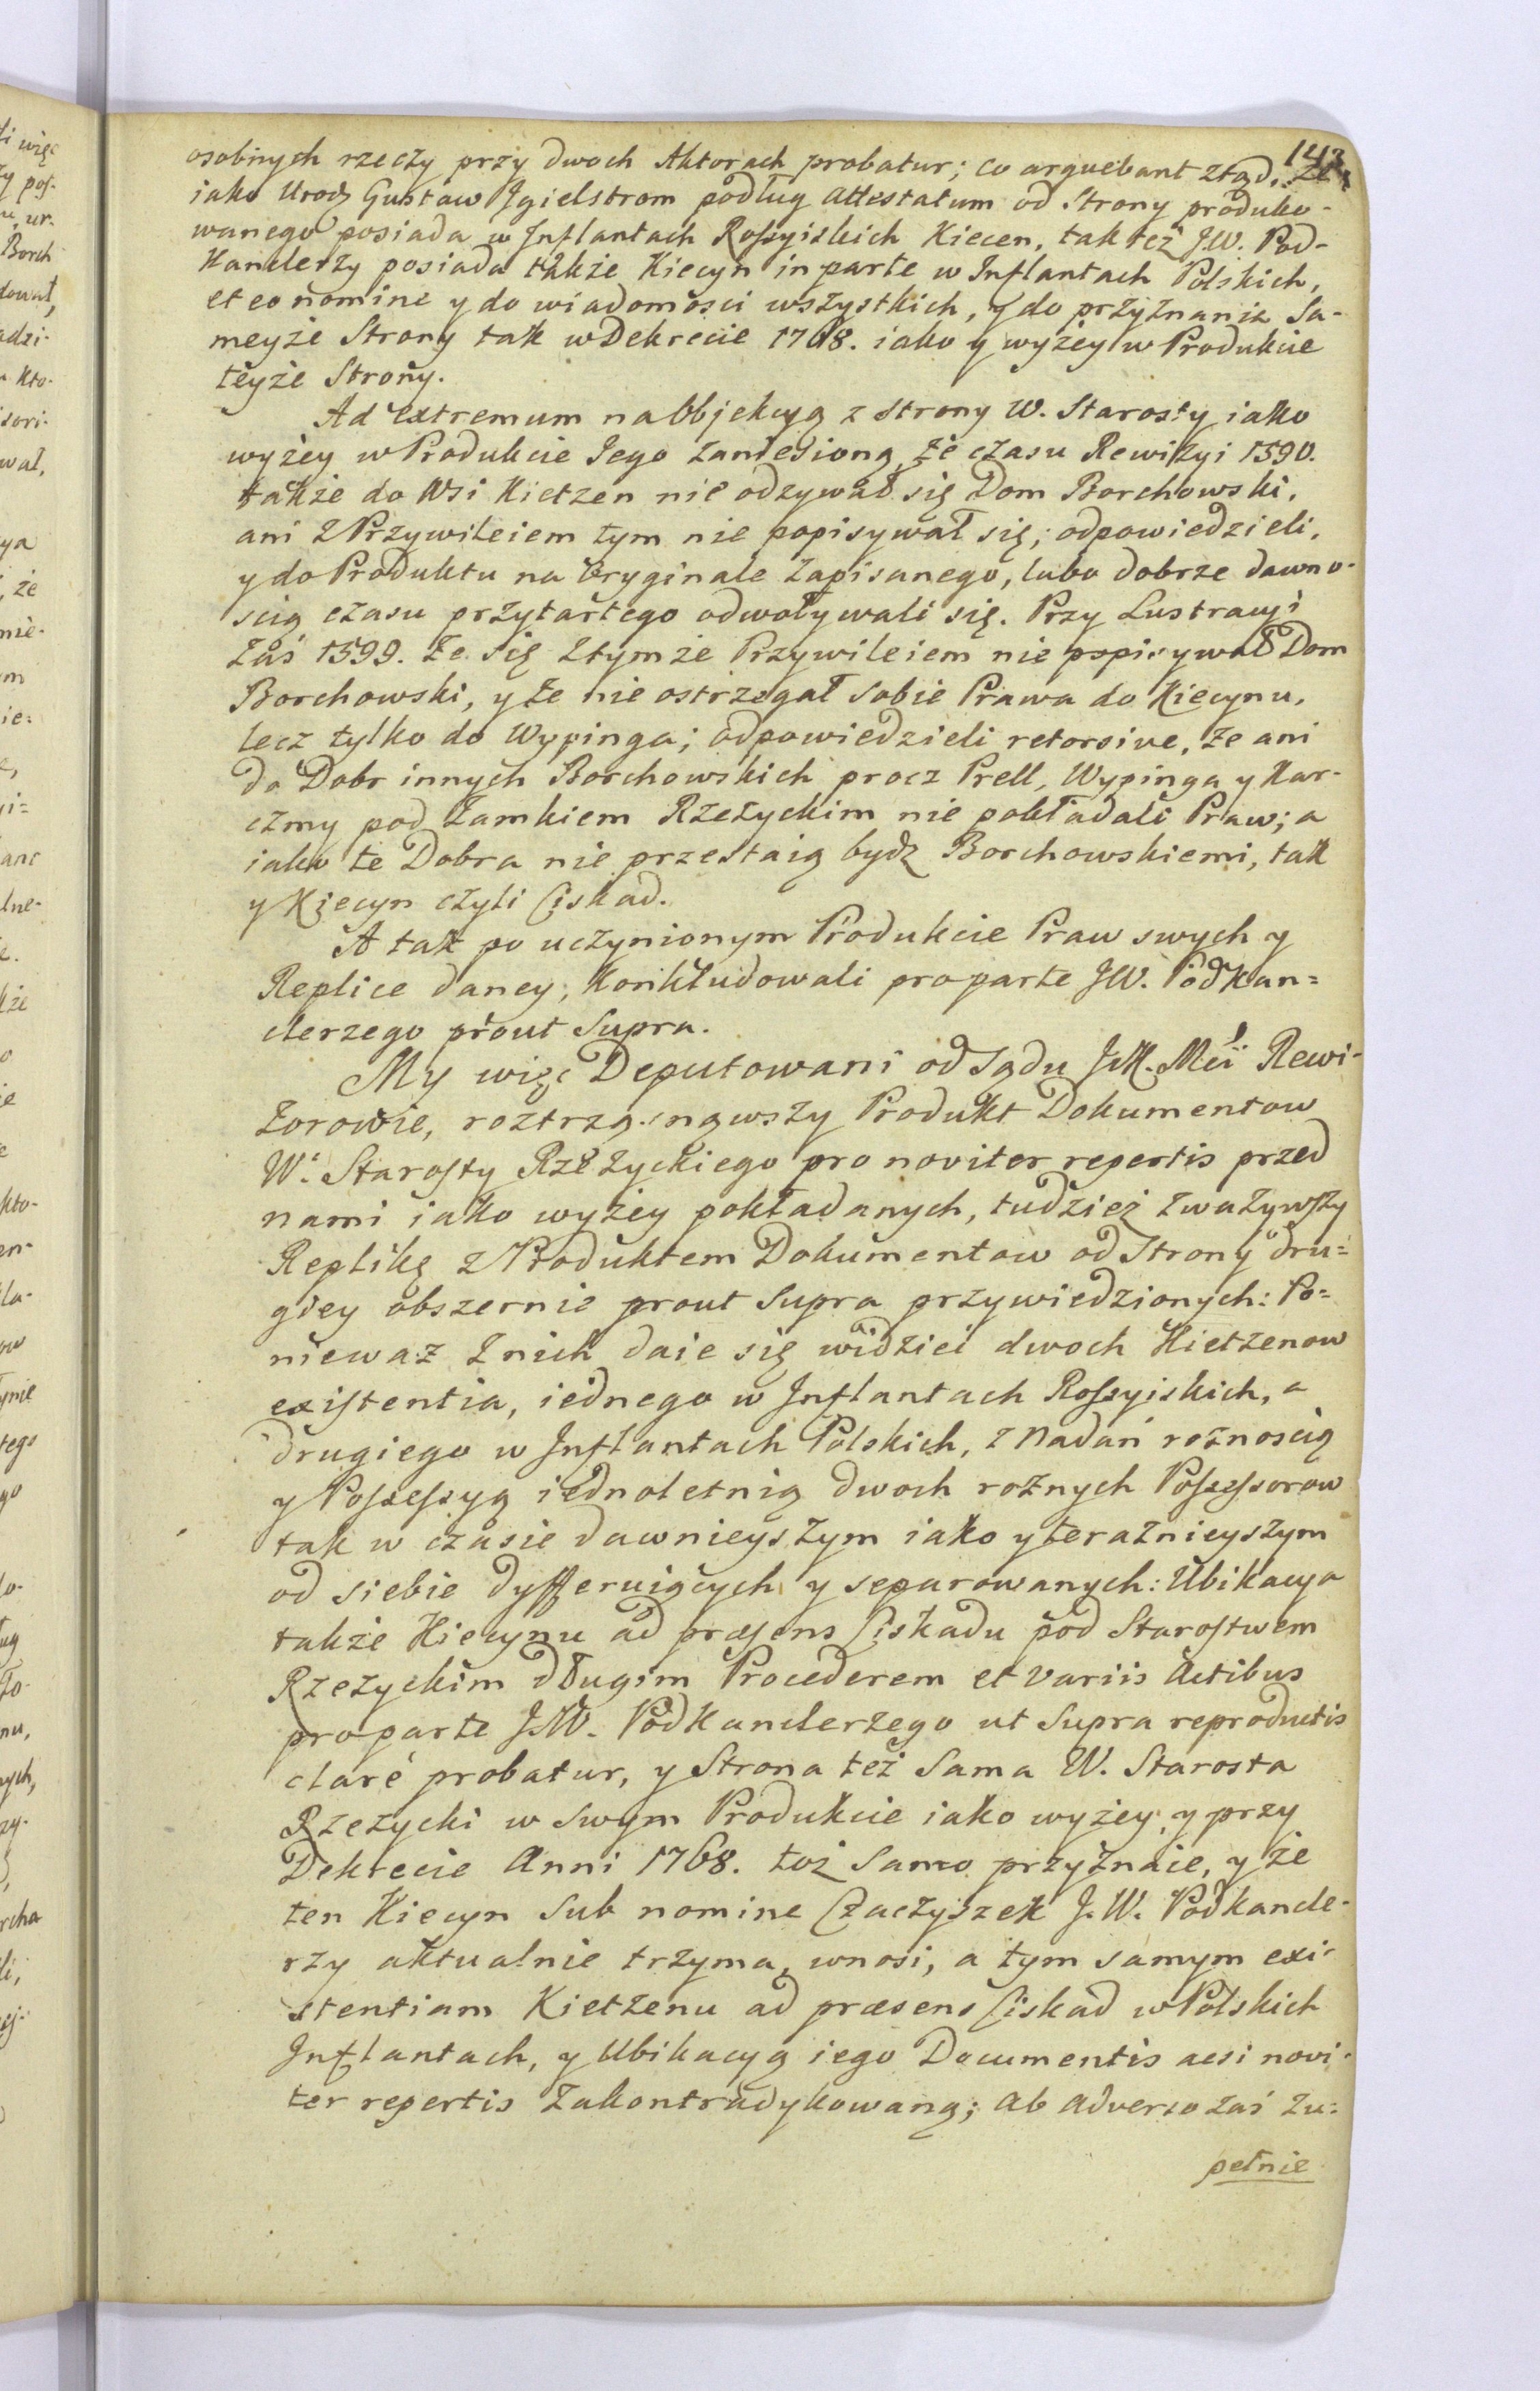 143
osobnych rzeczy przy dwoch Aktorach probatur; co arguebant ztąd, że
iako Urodz Gustaw Jgielstrom podług Attestatum od Strony produko-
wanego posiada w Inflantach Rossyiskich Kiecen, tak też J.W. Pod-
Kanclerzy posiada także Kiecyn in parte w Inflantach Polskich,
et eo nomine y do wiadomosci wszystkich, y do przyznania Sa-
meyże Strony tak w Dekrecie 1768. iako y wyżey w Produkcie
teyże Strony.
Ad extremum na Objekcyą z Strony W. Starosty iako
wyżey w Produkcie Jego zaniesioną, że czasu Rewizyi 1590.
także do Wsi Kietzen nie odzywał się Dom Borchowski,
ani z Przywileiem tym nie popisywał się; odpowiedzieli,
y do Produktu na Oryginale zapisanego, lubo dobrze dawno-
scią czasu przytartego odwoływali się. Przy Lustracyi
zaś 1599. że się z tymże Przywileiem nie popisywał Dom
Borchowski, y że nie ostrzegał sobie Prawa do Kiecynu,
lecz tylko do Wypinga; odpowiedzieli retorsive, że ani
do Dobr innych Borchowskich procz Prell, Wypinga y Kar-
czmy pod Zamkiem Rzeżyckim nie pokładali Praw; a
iako te Dobra nie przestaią bydź Borchowskiemi, tak
y Kiecyn czyli Ciskad.
A tak po uczynionym Produkcie Praw swych y
Replice daney, konkludowali pro parte JW. Podkan=
clerzego prout Supra.
My więc Deputowani od Sądu JK. Mci Rewi-
zorowie, roztrząsnąwszy Produkt Dokumentow
W. Starosty Rzeżyckiego pro noviter repertis przed
nami iako wyżey pokładanych, tudzież zważywszy
Replikę z Produktem Dokumentow od Strony dru=
giey obszernie prout Supra przywiedzionych: Po=
nieważ z nich daie się widzieć dwoch Kietzenow
existentia, iednego w Inflantach Rossyiskich, a
drugiego w Inflantach Polskich, z Nadań rożnoscią
y Possessyą iednoletnią dwoch rożnych Possessorow
tak w czasie dawnieyszym iako y teraźnieyszym
od siebie dyfferuiących y separowanych: Ubikacya
także Kiecynu ad præsens Ciskadu pod Starostwem
Rzeżyckim długim Procederem et variis Actibus
pro parte J.W. Podkanclerzego ut Supra reproductis
claré probatur, y Strona też Sama W. Starosta
Rzeżycki w Swym Produkcie iako wyżey, y przy
Dekrecie Anni 1768. toż Samo przyznaie, y że
ten Kiecyn Sub nomine Czaczyszek J.W. Podkancle-
rzy aktualnie trzyma, wnosi, a tym samym exi-
stentiam Kietzenu ad præsens Ciskad w Polskich
Inflantach, y Ubikacyą iego Documentis acsi novi-
ter repertis zakontradykowaną; ab adverso zaś zu=
pełnie